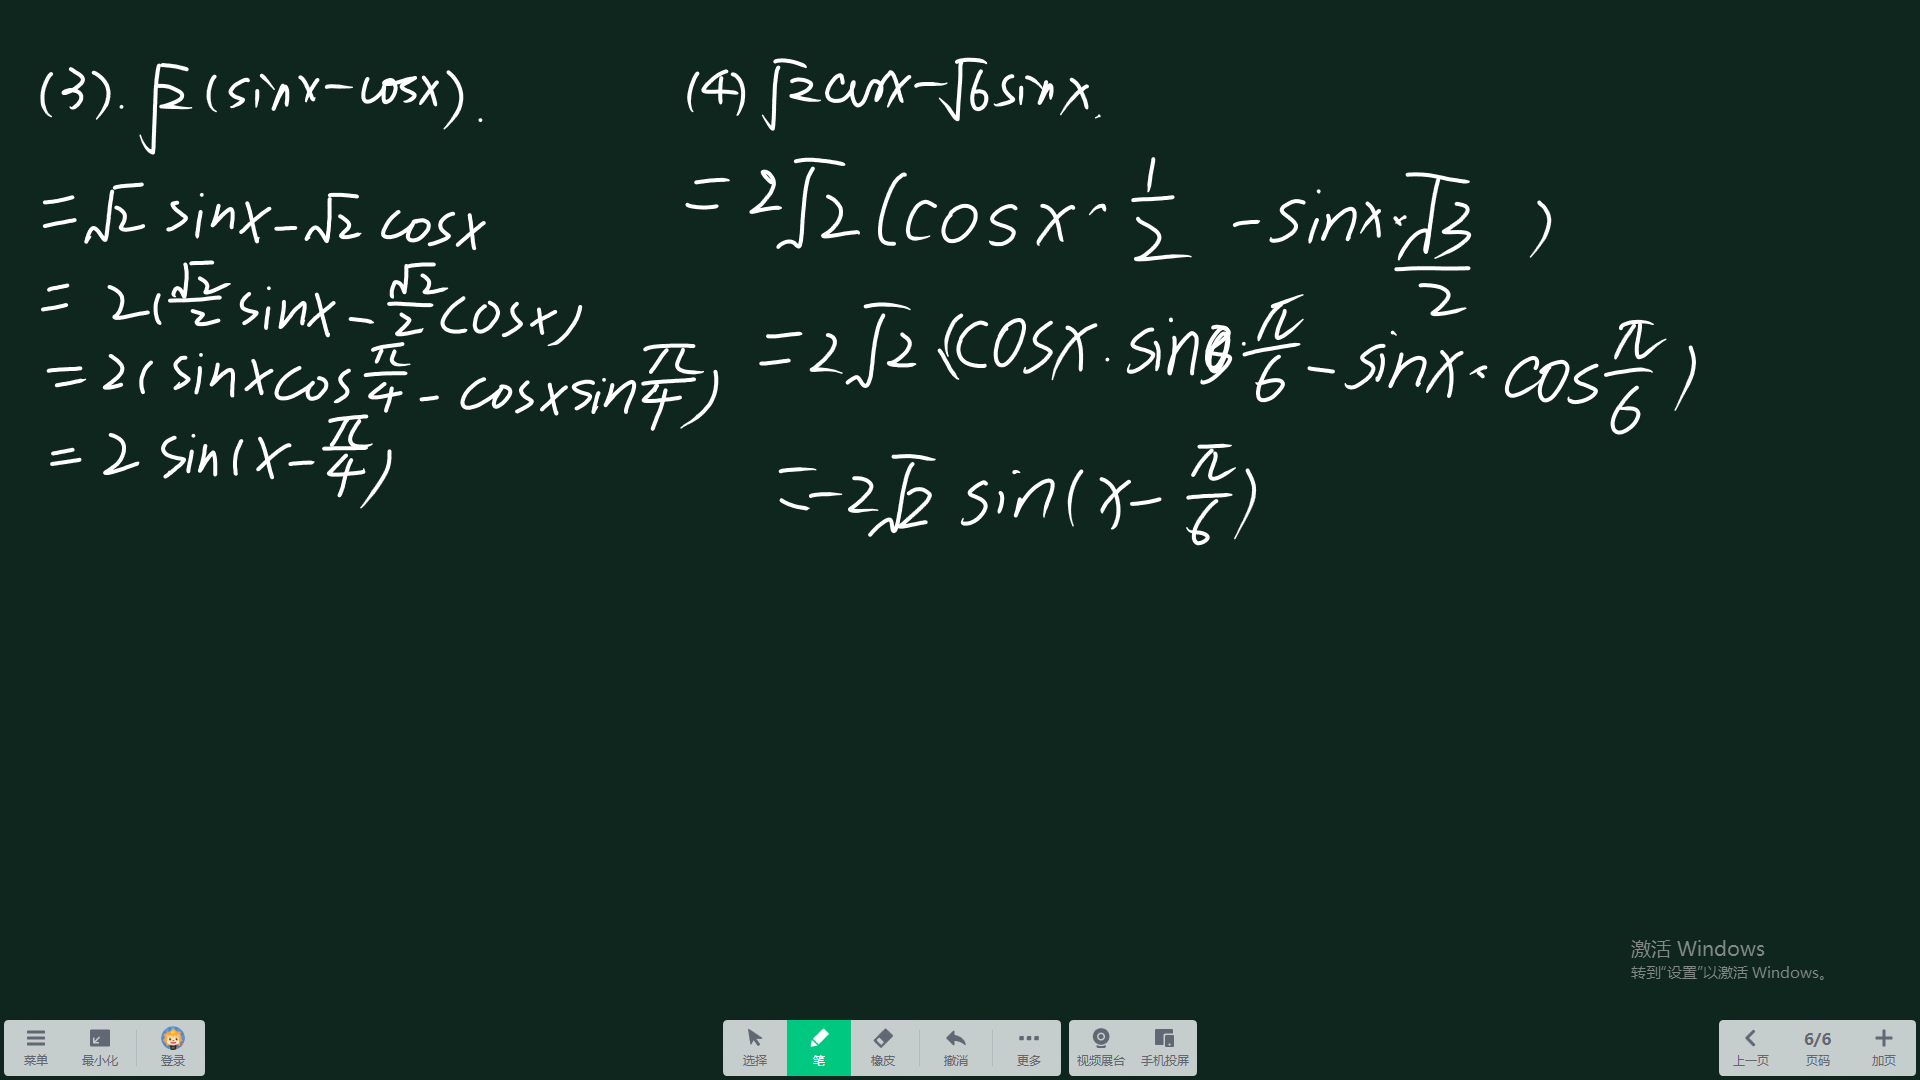 (3). √2 (sinx-cosx).
=√2 sinx-√2 cosx
= 2(√2/2 sinx-√2/2 cosx)
=2(sinxcosπ/4-cosxsinπ/4)
=2 sin(x-π/4)
(4) √2cosx-√6sinx.
=2√2(cosx·1/2-sinx·√3/2)
=2√2(cosx·sinπ/6-sinx·cosπ/6)
=-2√2 sin(x-π/6)
激活 Windows
转到“设置”以激活 Windows。
菜单 最小化 登录 选择 笔 橡皮 撤消 更多 视频展台 手机投屏 上一页 6/6 页码 加页